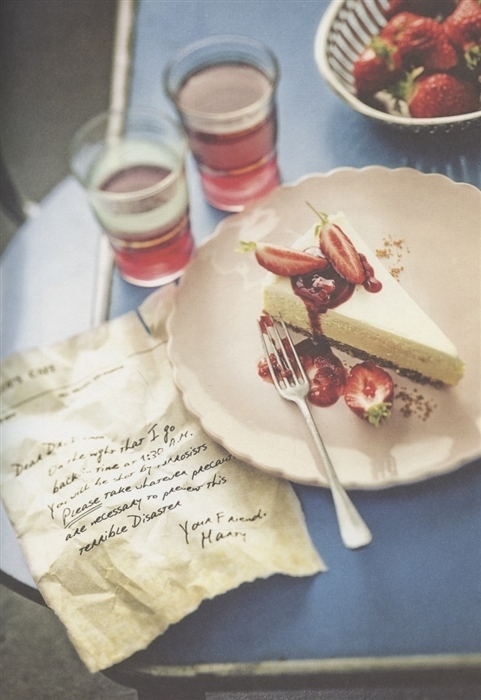 Dear D
On the night that I go
back in time at 1:30 A.M.
You will be shot by terrorists
Please take whatever
are necessary to prevent this
terrible Disaster
Your Friend.
Marty